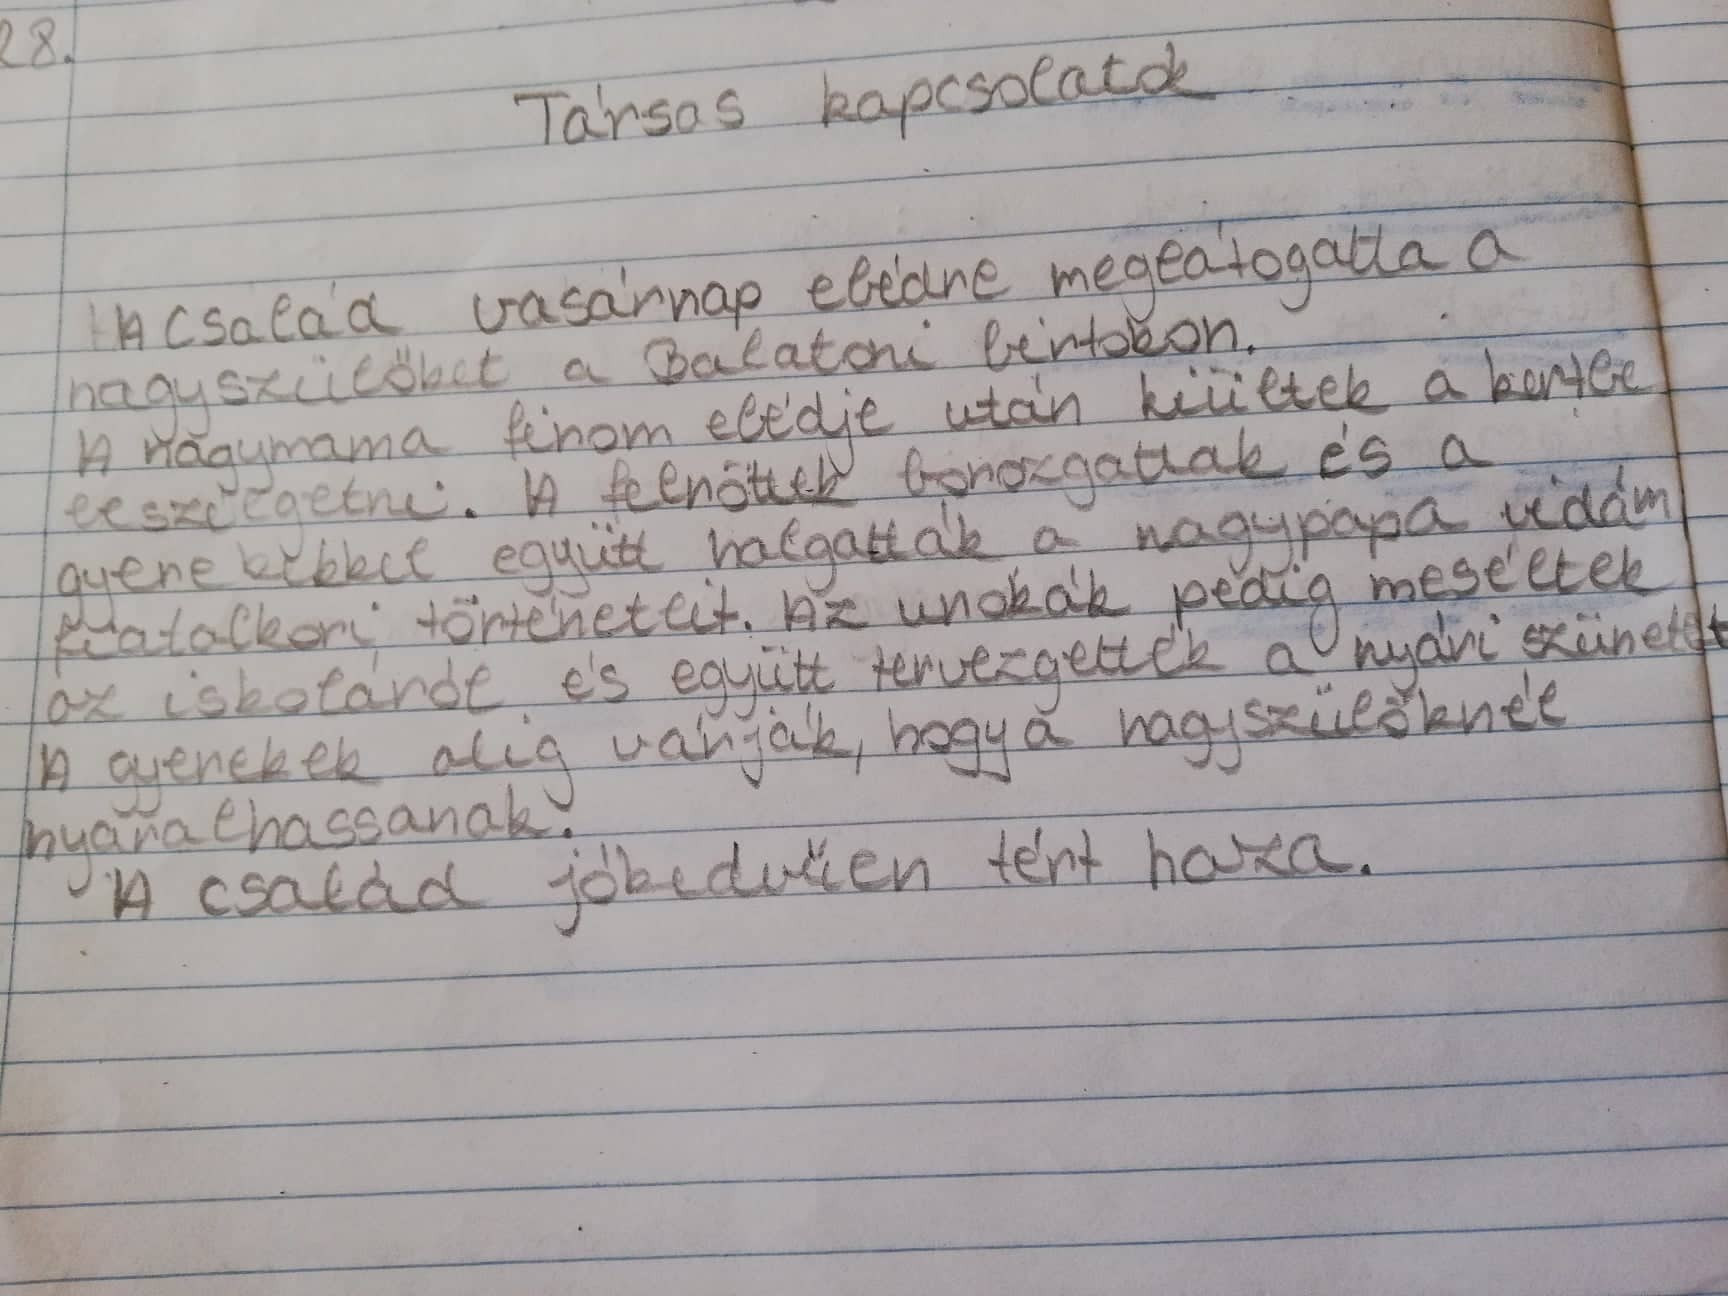 28.
Társas kapcsolatok
A család vasárnap ebédre meglátogatta a
nagyszülőket a Balatoni birtokon.
A nagymama finom ebédje után kiültek a kertbe
beszélgetni. A felnőttek borozgattak és a
gyerekekkel együtt halgatták a nagypapa vidám
fiatalkori történeteit. Az unokák pedig meséltek
az iskoláról és együtt tervezgették a nyári szünetet
A gyerekek alig várják, hogy a nagyszülőknél
nyaralhassanak.
A család jókedvűen tért haza.